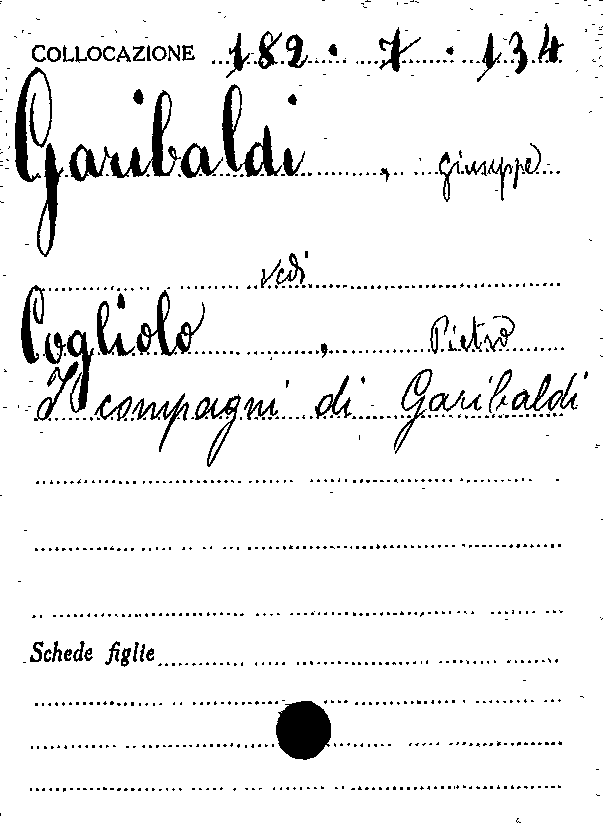 COLLOCAZIONE 182 . 7 . 134
Garibaldi , Giuseppe
vedi
Cogliolo , Pietro
I compagni di Garibaldi
Schede figlie